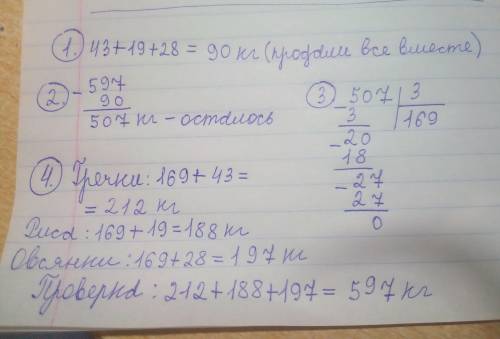 1. 43+19+28 = 90 кг (продали все вместе)
2. - 597
90
507 кг - осталось
3. - 507 | 3
3 | 169
- 20
18
- 27
27
0
4. Гречки: 169 + 43 =
= 212 кг
Риса: 169 + 19 = 188 кг
Овсянки: 169 + 28 = 197 кг
Проверка: 212 + 188 + 197 = 597 кг